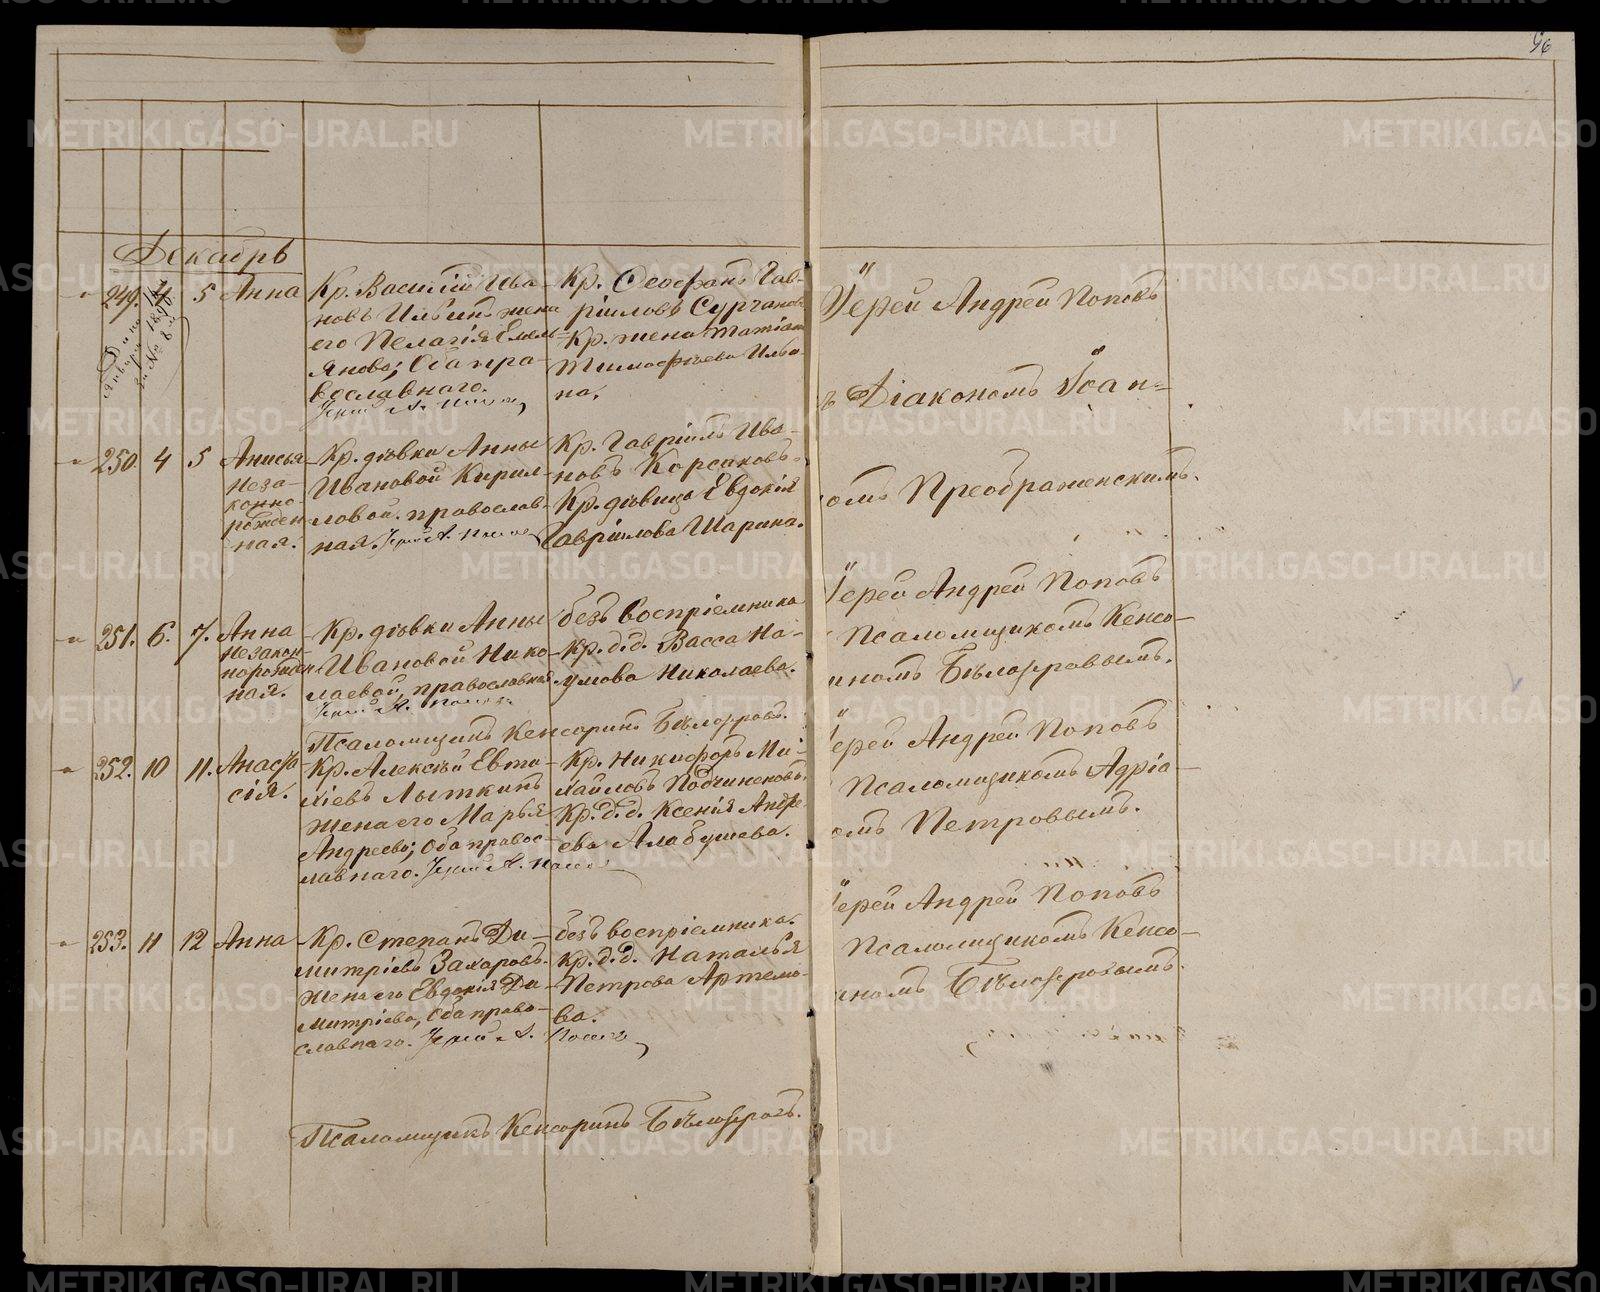 96
Декабрь
249. 4 5 Анна
Кр. Василій Ива-
новъ Ильинъ жена
его Пелагія Емель-
янова; Оба пра-
вославнаго.
Кр. Ѳеофанъ Гав-
ріиловъ Сурчановъ
Кр. жена Татіана
Тимоѳѣева Ильи-
на.
Іерей Андрей Поповъ
ъ Діакономъ Іоан-
омъ Преображенскимъ.
250. 4 5 Анисья
неза-
конно
рожден
ная.
Кр. дѣвки Анны
Ивановой Кирил-
ловой. православ-
ная.
Кр. Гавріилъ Ива-
новъ Корсаковъ.
Кр. дѣвица Евдокія
Гавріилова Шарина.
251. 6. 7. Анна
незакон-
норожден
ная.
Кр. дѣвки Анны
Ивановой Нико-
лаевой, православная
безъ воспріемника
Кр. д. д. Васса На-
умова Николаева.
Іерей Андрей Поповъ
Псаломщикомъ Кенсо-
иномъ Бѣлозеровымъ.
Псаломщикъ Кенсоринъ Бѣлозеровъ.
252. 10 11. Анаста
сія.
Кр. Алексѣй Евти-
хіевъ Лыткинъ
жена его Марья
Андреева; Оба правос-
лавнаго.
Кр. Никифоръ Ми-
хайловъ Подчиненовъ.
Кр. д. д. Ксенія Андре
ева Алабушева.
ерей Андрей Поповъ
Псаломщикомъ Адріа-
омъ Петровымъ.
253. 11 12 Анна
Кр. Степанъ Ди-
митріевъ Захаровъ.
жена его Евдокія Ди-
митріева, Оба право-
славнаго.
безъ воспріемника.
Кр. д. д. Наталья
Петрова Артемо-
ва.
ерей Андрей Поповъ
Псаломщикомъ Кенсо-
иномъ Бѣлозеровымъ.
Псаломщикъ Кенсоринъ Бѣлозеровъ.
METRIKI.GASO-URAL.RU